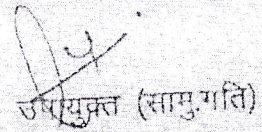 उपायुक्त (सामु.गति)